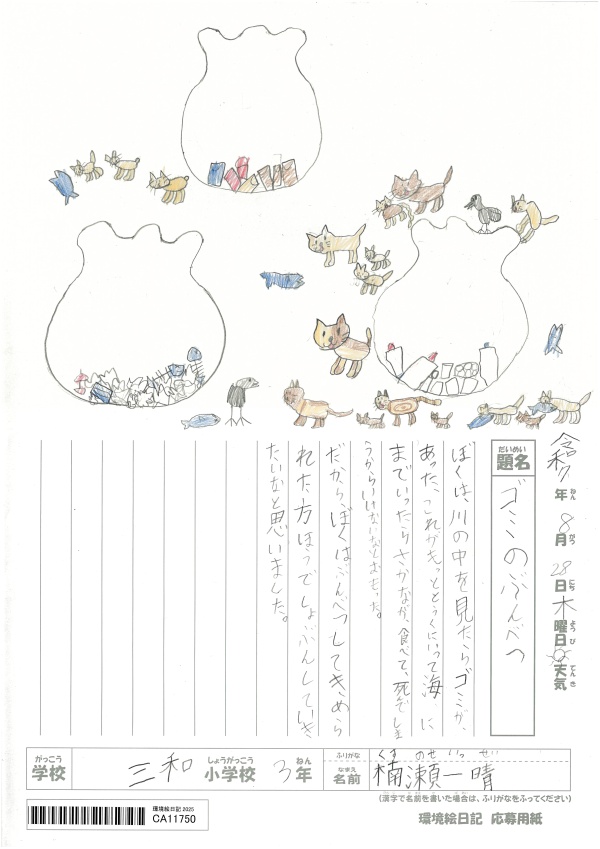 令和7年8月28日木曜日 天気
ねん がつ にち ようび てんき
だいめい
題名
ゴミのぶんべつ
ぼくは、川の中を見たらゴミが、
あった、これがもっととうくにいって海に
までいったらさかなが、食べて、死んでしま
うからいけないなとおもった。
だから、ぼくはぶんべつしてきめら
れた方ほうでしょぶんしていき
たいなと思いました。
がっこう しょうがっこう ねん
学校 三和 小学校 3年
ふりがな くすのせ いっせい
なまえ
名前 楠瀬一晴
(漢字で名前を書いた場合は、ふりがなをふってください)
環境絵日記 2025
CA11750
環境絵日記 応募用紙